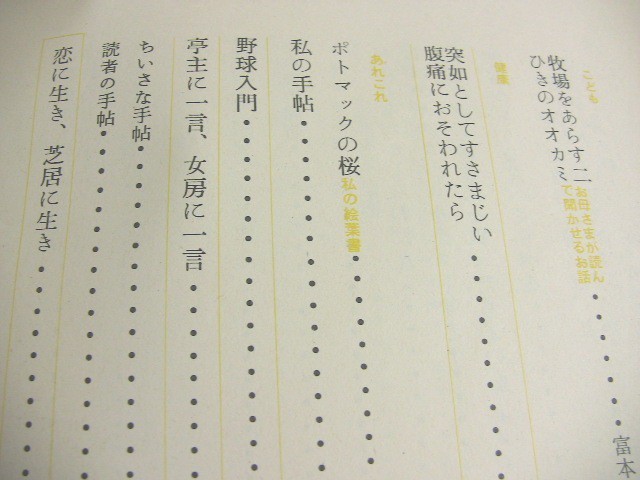 こども
牧場をあらす二
ひきのオオカミ
お母さまが読ん
で聞かせるお話
富本
健康
突如としてすさまじい
腹痛におそわれたら
あれこれ
ポトマックの桜
私の絵葉書
私の手帖
野球入門
亭主に一言、女房に一言
ちいさな手帖
読者の手帖
恋に生き、芝居に生き